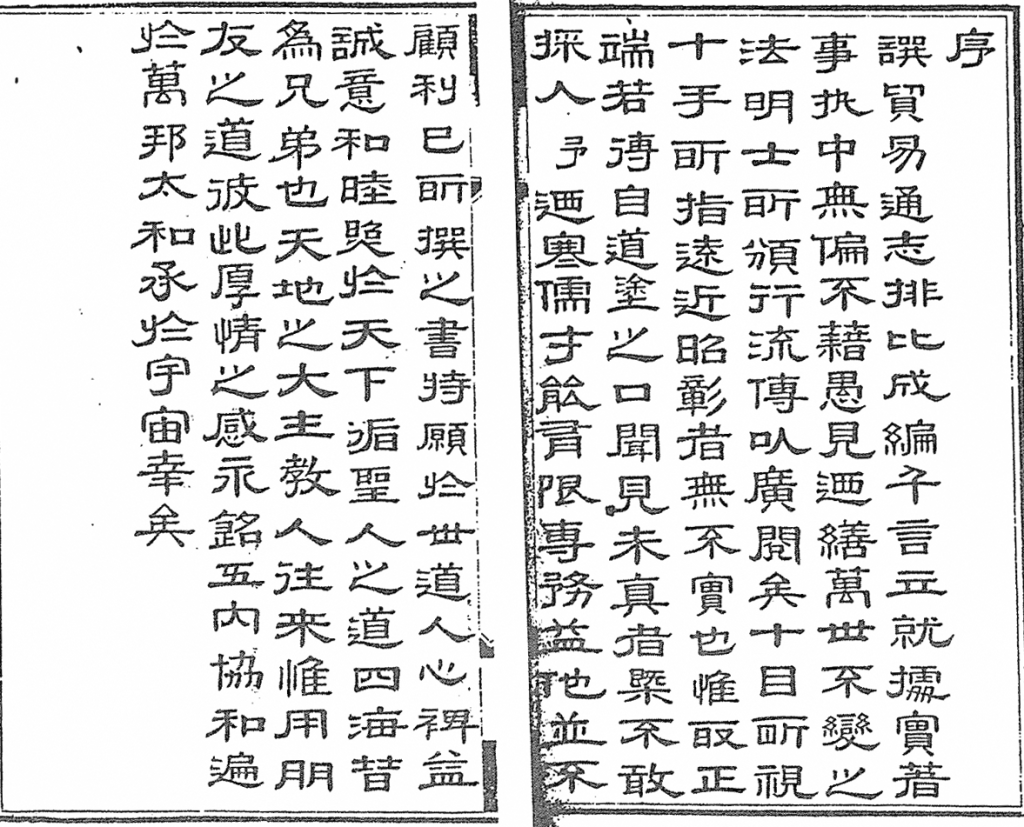 序
譔貿易通志排比成編千言立就據實著
事执中無偏不藉愚見迺繕萬世不變之
法明士所頒行流傳以廣閱矣十目所視
十手所指遠近昭彰者無不實也惟取正
端若得自道塗之口聞見未真者槩不敢
採入予迺寒儒才能有限專務益他並不
顧利己所撰之書特願於世道人心裨益
誠意和睦於天下循聖人之道四海皆
為兄弟也天地之大主教人往来惟用朋
友之道彼此厚情之感永銘五內協和遍
於萬邦太和承於宇宙幸矣